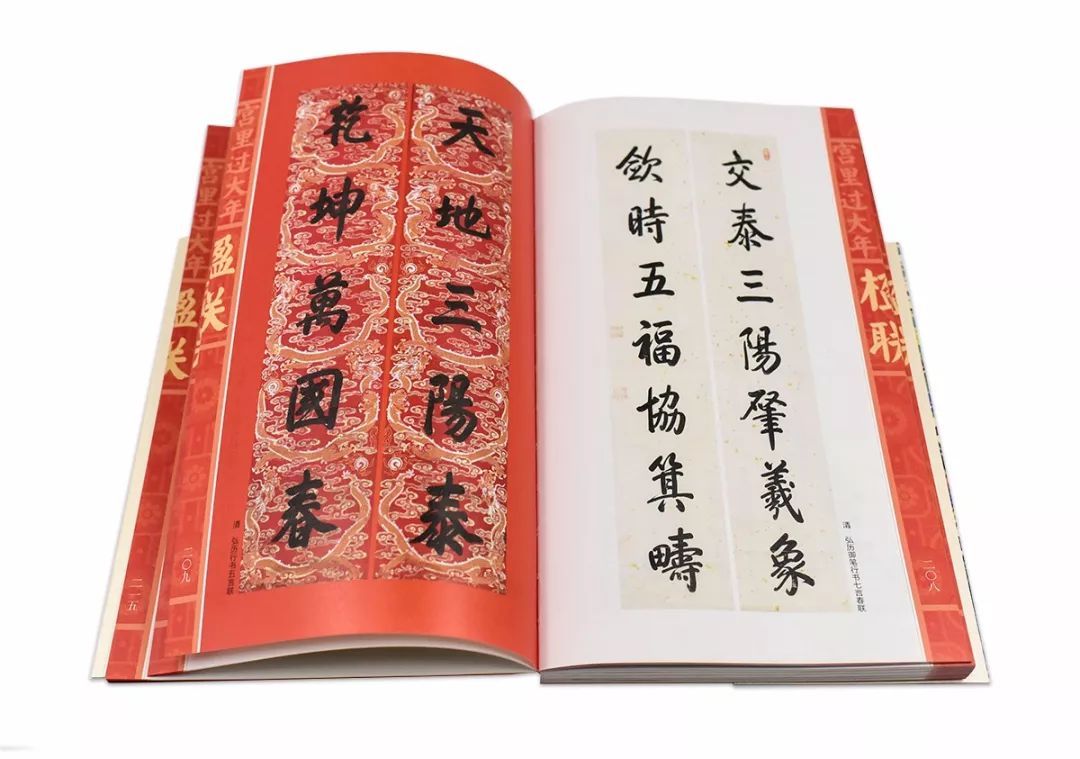 宫里过大年
楹联
二〇八
交泰三陽肇羲象
欽時五福協箕疇
清 弘历御笔行书七言春联
天地三陽泰
乾坤萬國春
清 弘历行书五言联
宫里过大年
二〇九
宫里过大年
二一五